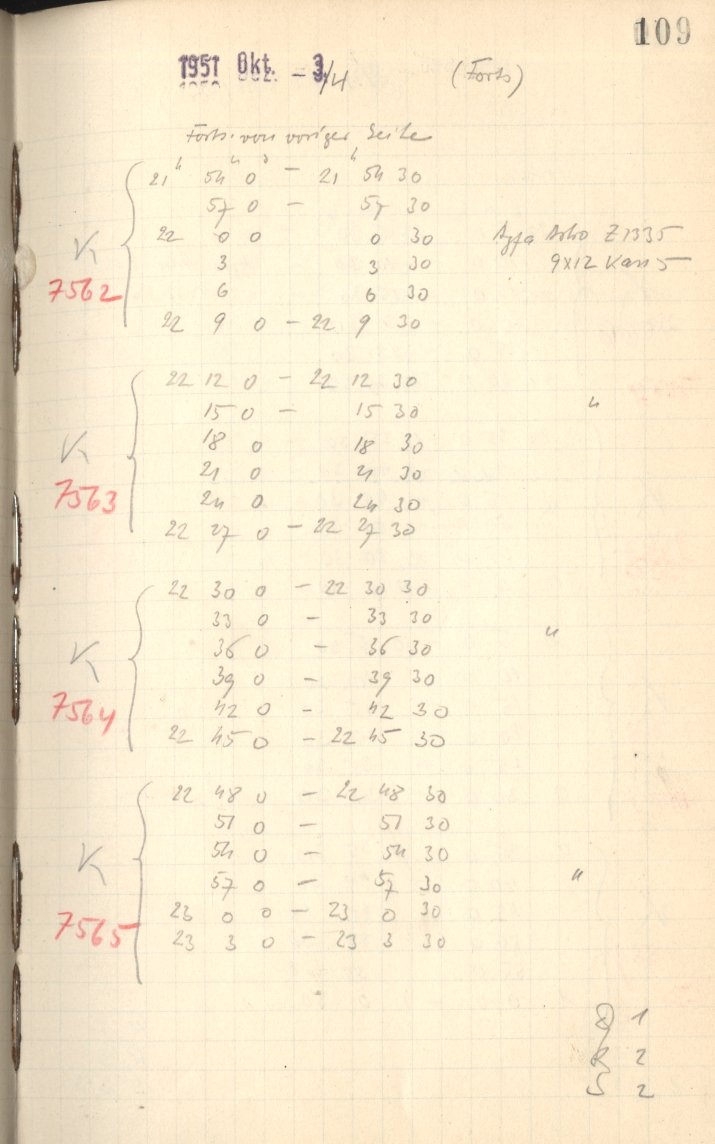 109
1951 Okt. - 3/4 (Forts)
Forts. von voriger Seite
21h 54m 0s - 21h 54 30
57 0 - 57 30
22 0 0 0 30 Agfa Astro Z1335
3 3 30 9x12 Kass 5
6 6 30
22 9 0 - 22 9 30
K
7562
22 12 0 - 22 12 30
15 0 - 15 30 "
18 0 18 30
21 0 21 30
24 0 24 30
22 27 0 - 22 27 30
K
7563
22 30 0 - 22 30 30
33 0 - 33 30
36 0 - 36 30 "
39 0 - 39 30
42 0 - 42 30
22 45 0 - 22 45 30
K
7564
22 48 0 - 22 48 30
51 0 - 51 30
54 0 - 54 30
57 0 - 57 30 "
23 0 0 - 23 0 30
23 3 0 - 23 3 30
K
7565
1
R 2
S 2